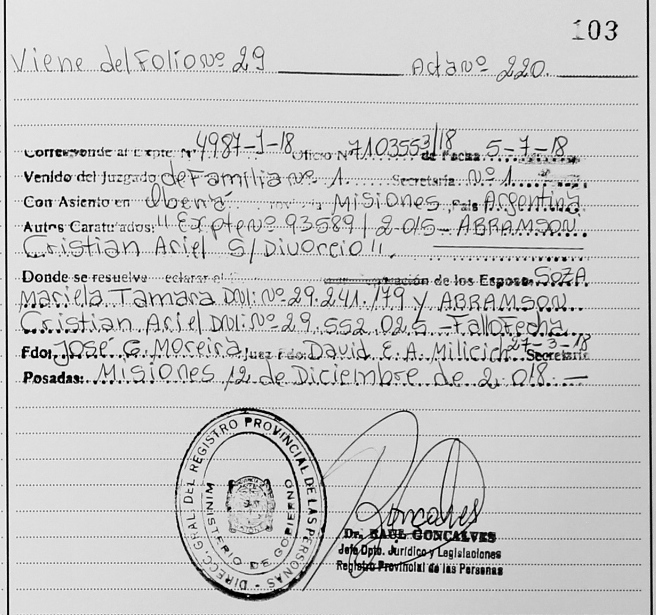 103
Viene del Folio nº 29 Acta nº 220.
Corresponde al Expte. Nº 4987-1-18 Oficio Nº 7103553/18 de Fecha 5-7-18
Venido del Juzgado de Familia nº 1. Secretaría Nº 1
Con Asiento en Oberá Misiones, País Argentina
Autos Caratulados: "Expte nº 93589/2.015- ABRAMSON
Cristian Ariel S/Divorcio".
Donde se resuelve de los Esposos SOZA
Mariela Tamara DNI: Nº 29.241.179 y ABRAMSON
Cristian Ariel DNI: Nº 29.552.025 - Fallo Fecha
27-3-18
Fdo: José G. Moreira Juez Fdo: David E. A. Milicich Secretario
Posadas: Misiones 12 de Diciembre de 2.018.-
DIRECC. GRAL. DEL REGISTRO PROVINCIAL DE LAS PERSONAS -
MINISTERIO DE GOBIERNO
Goncalves
Dr. RAUL GONCALVES
Jefe Dpto. Jurídico y Legislaciones
Registro Provincial de las Personas